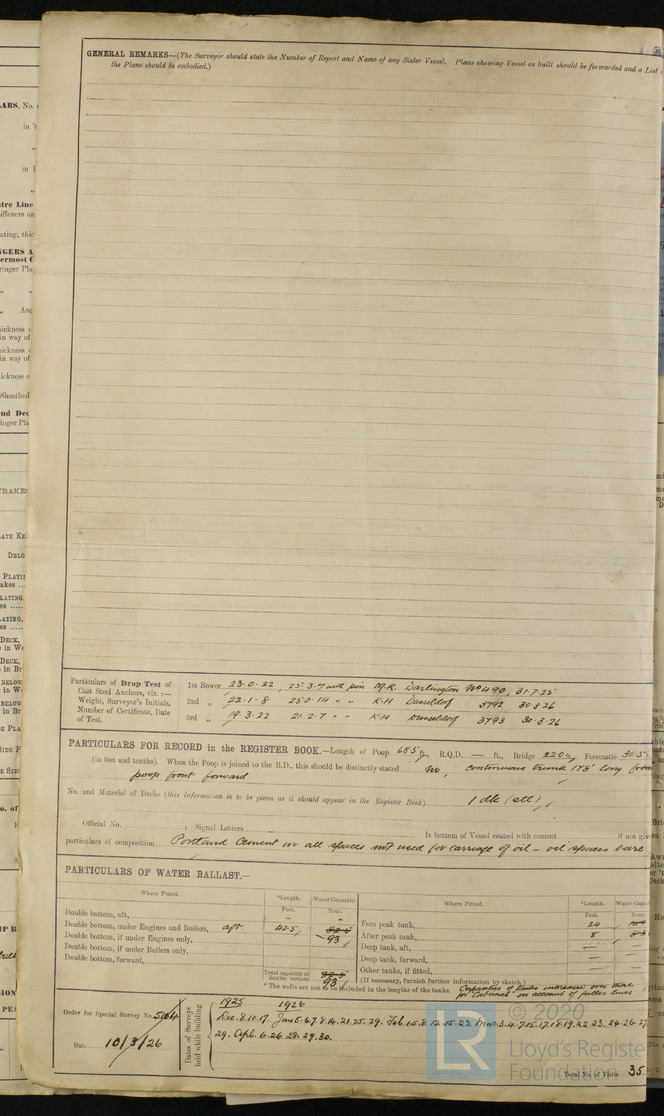 GENERAL REMARKS—(The Surveyor should state the Number of Report and Name of any Sister Vessel. Plans showing Vessel as built should be forwarded and a List
the Plans should be embodied.)
Particulars of Drop Test of
Cast Steel Anchors, viz. :—
Weight, Surveyor's Initials,
Number of Certificate, Date
of Test.
1st Bower 23.0.22, 25.3.7 with pin M.R. Darlington No 490, 31.7.25
2nd „ 22.1.8 25.0.14 " " K.H Dusseldorf 3792 30.3.26
3rd „ 19.3.22 21.2.7 " " K.H Dusseldorf 3793 30.3.26
PARTICULARS FOR RECORD in the REGISTER BOOK.—Length of Poop 68.5 ft., R.Q.D. — ft., Bridge 22.0 ft., Forecastle 30.5
(in feet and tenths). When the Poop is joined to the B.D., this should be distinctly stated No, continuous trunk 178' long from
poop front forward
No. and Material of Decks (this information is to be given as it should appear in the Register Book) 1 dk (stl)
Official No. ; Signal Letters Is bottom of Vessel coated with cement if not given
particulars of composition Portland Cement in all spaces not used for carriage of oil – oil spaces bare
PARTICULARS OF WATER BALLAST.—
Where Fitted. *Length. Water Capacity. Where Fitted. *Length. Water Capac
Feet. Tons. Feet. Tons.
Double bottom, aft, — —
Double bottom, under Engines and Boilers, aft 42.5 93 Fore peak tank, 24
Double bottom, if under Engines only, After peak tank, 8
Double bottom, if under Boilers only, Deep tank, aft, —
Double bottom, forward, Deep tank, forward, —
Total capacity of double bottom 93 Other tanks, if fitted, —
(If necessary, furnish further information by sketch.)
* The wells are not to be included in the lengths of the tanks. Capacities of tanks increased over those
for "Cadmus" on account of fuller lines
Order for Special Survey No. 5164
Date 10/3/26
Dates of Surveys held while building
1925 1926
Dec. 8.10.17. Jan. 5.6.7.8.14.21.25.29. Feb. 1.5.8.12.15.23. Mar. 3.4.7.15.17.18.19.22.23.24.26.27
29. Apl. 6.26.28.29.30.
Total No. of Visits 35
© 2020
LR
Lloyd's Register
Foundation